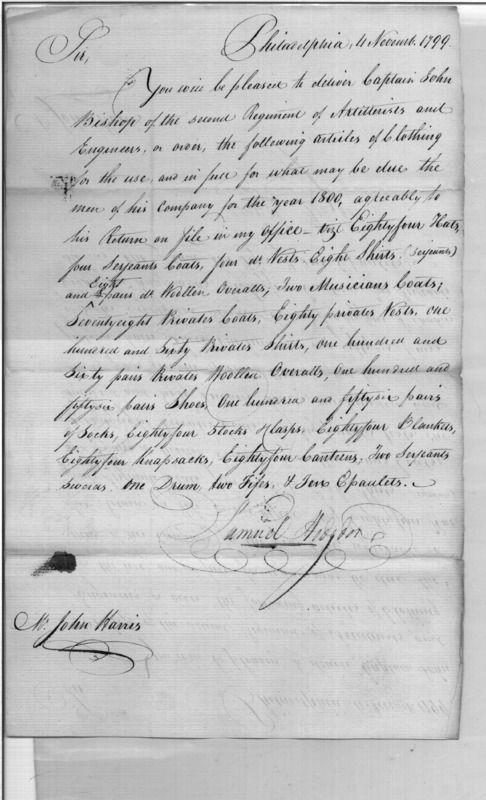 Philadelphia, 4 Novemb. 1799.
Sir,
You will be pleased to deliver Captain John
Bishop of the second Regiment of Artillerists and
Engineers, or order, the following articles of Clothing
for the use, and in full for what may be due the
men of his Company for the year 1800, agreeably to
his Return on file in my Office viz Eightyfour Hats,
four Serjeants Coats, four do. Vests. Eight Shirts (Serjeants)
and Eight pairs do. Woollen Overalls; Two Musicians Coats;
Seventyeight Privates Coats, Eighty privates Vests, one
hundred and Sixty Privates Shirts, one hundred and
Sixty pairs Privates Woollen Overalls, One hundred and
fiftysix pairs Shoes, One hundred and fiftysix pairs
of Socks, Eightyfour Stocks & Clasps, Eightyfour Blankets,
Eightyfour Knapsacks, Eightyfour Canteens, Two Serjeants
Swords. One Drum, two Fifes, & Ten Epaulets.
Samuel Hodgdon
Mr. John Harris